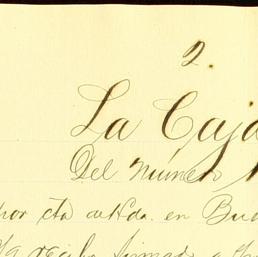 2.
La Caja
Del Número
por cta de Hda. en Bue
recibo firmado a